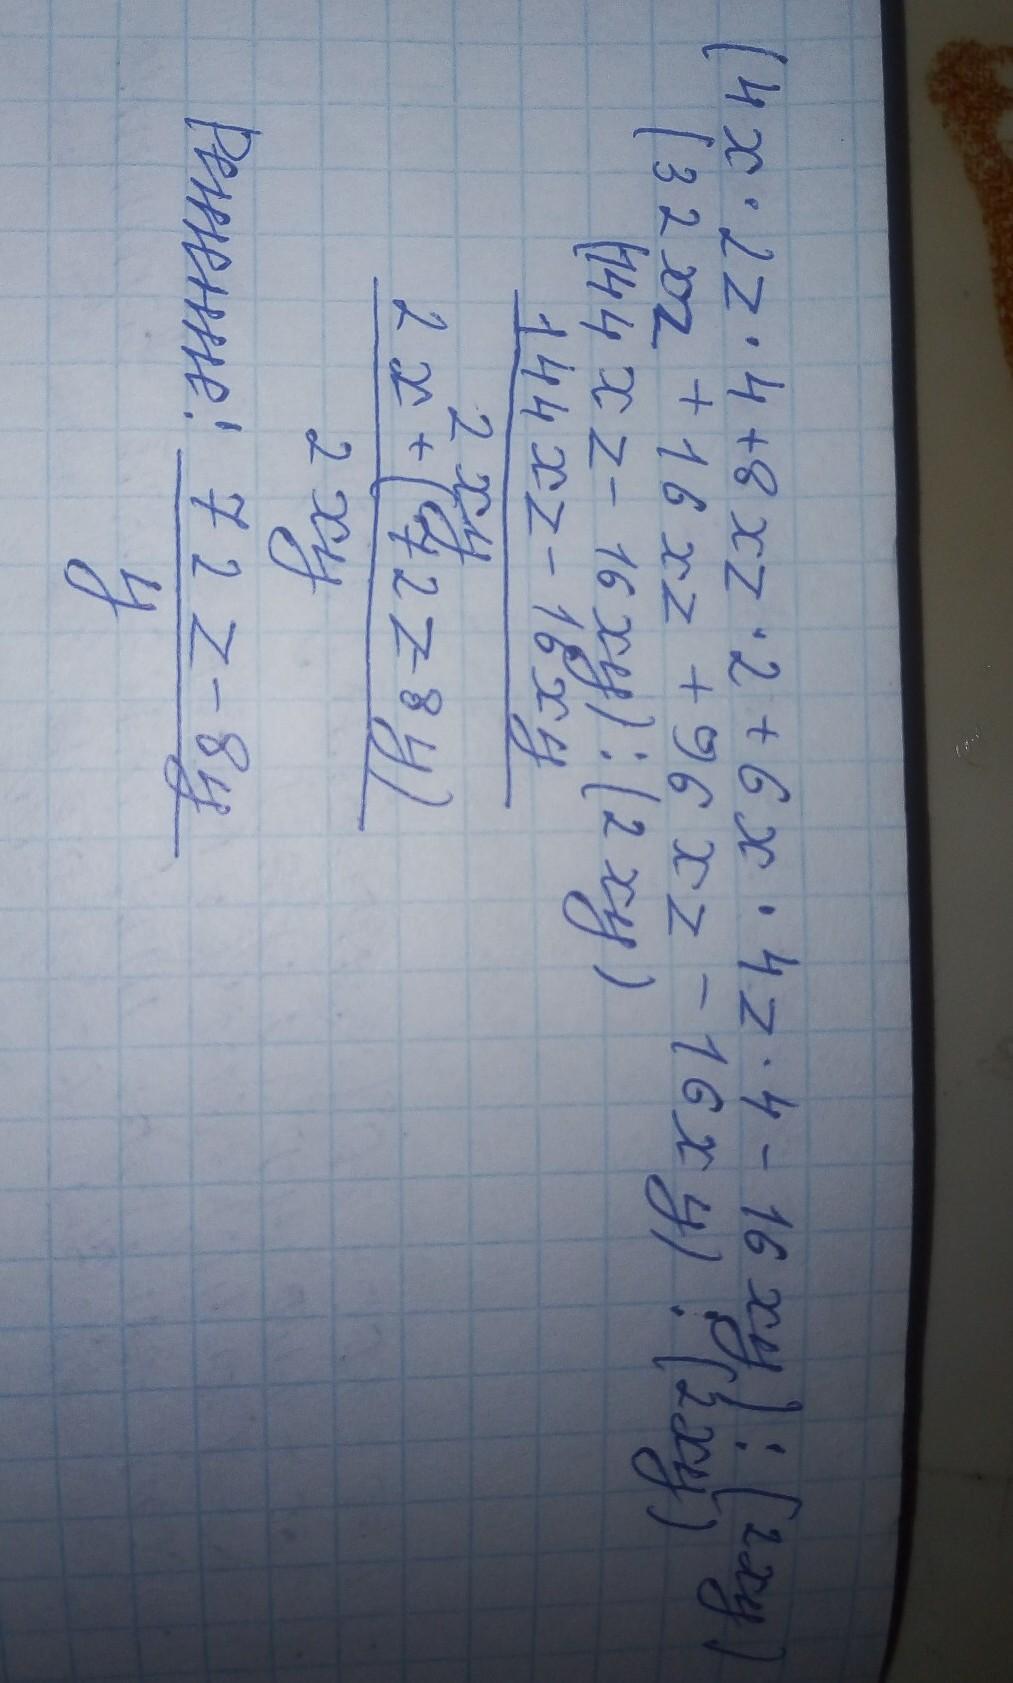 (4x·2z·4+8xz·2+6x·4z·4-16xy):(2xy)
(32xz+16xz+96xz-16xy):(2xy)
(144xz-16xy):(2xy)
144xz-16xy
2xy
2x+(72z-8y)
2xy
Решение: 72z-8y
y